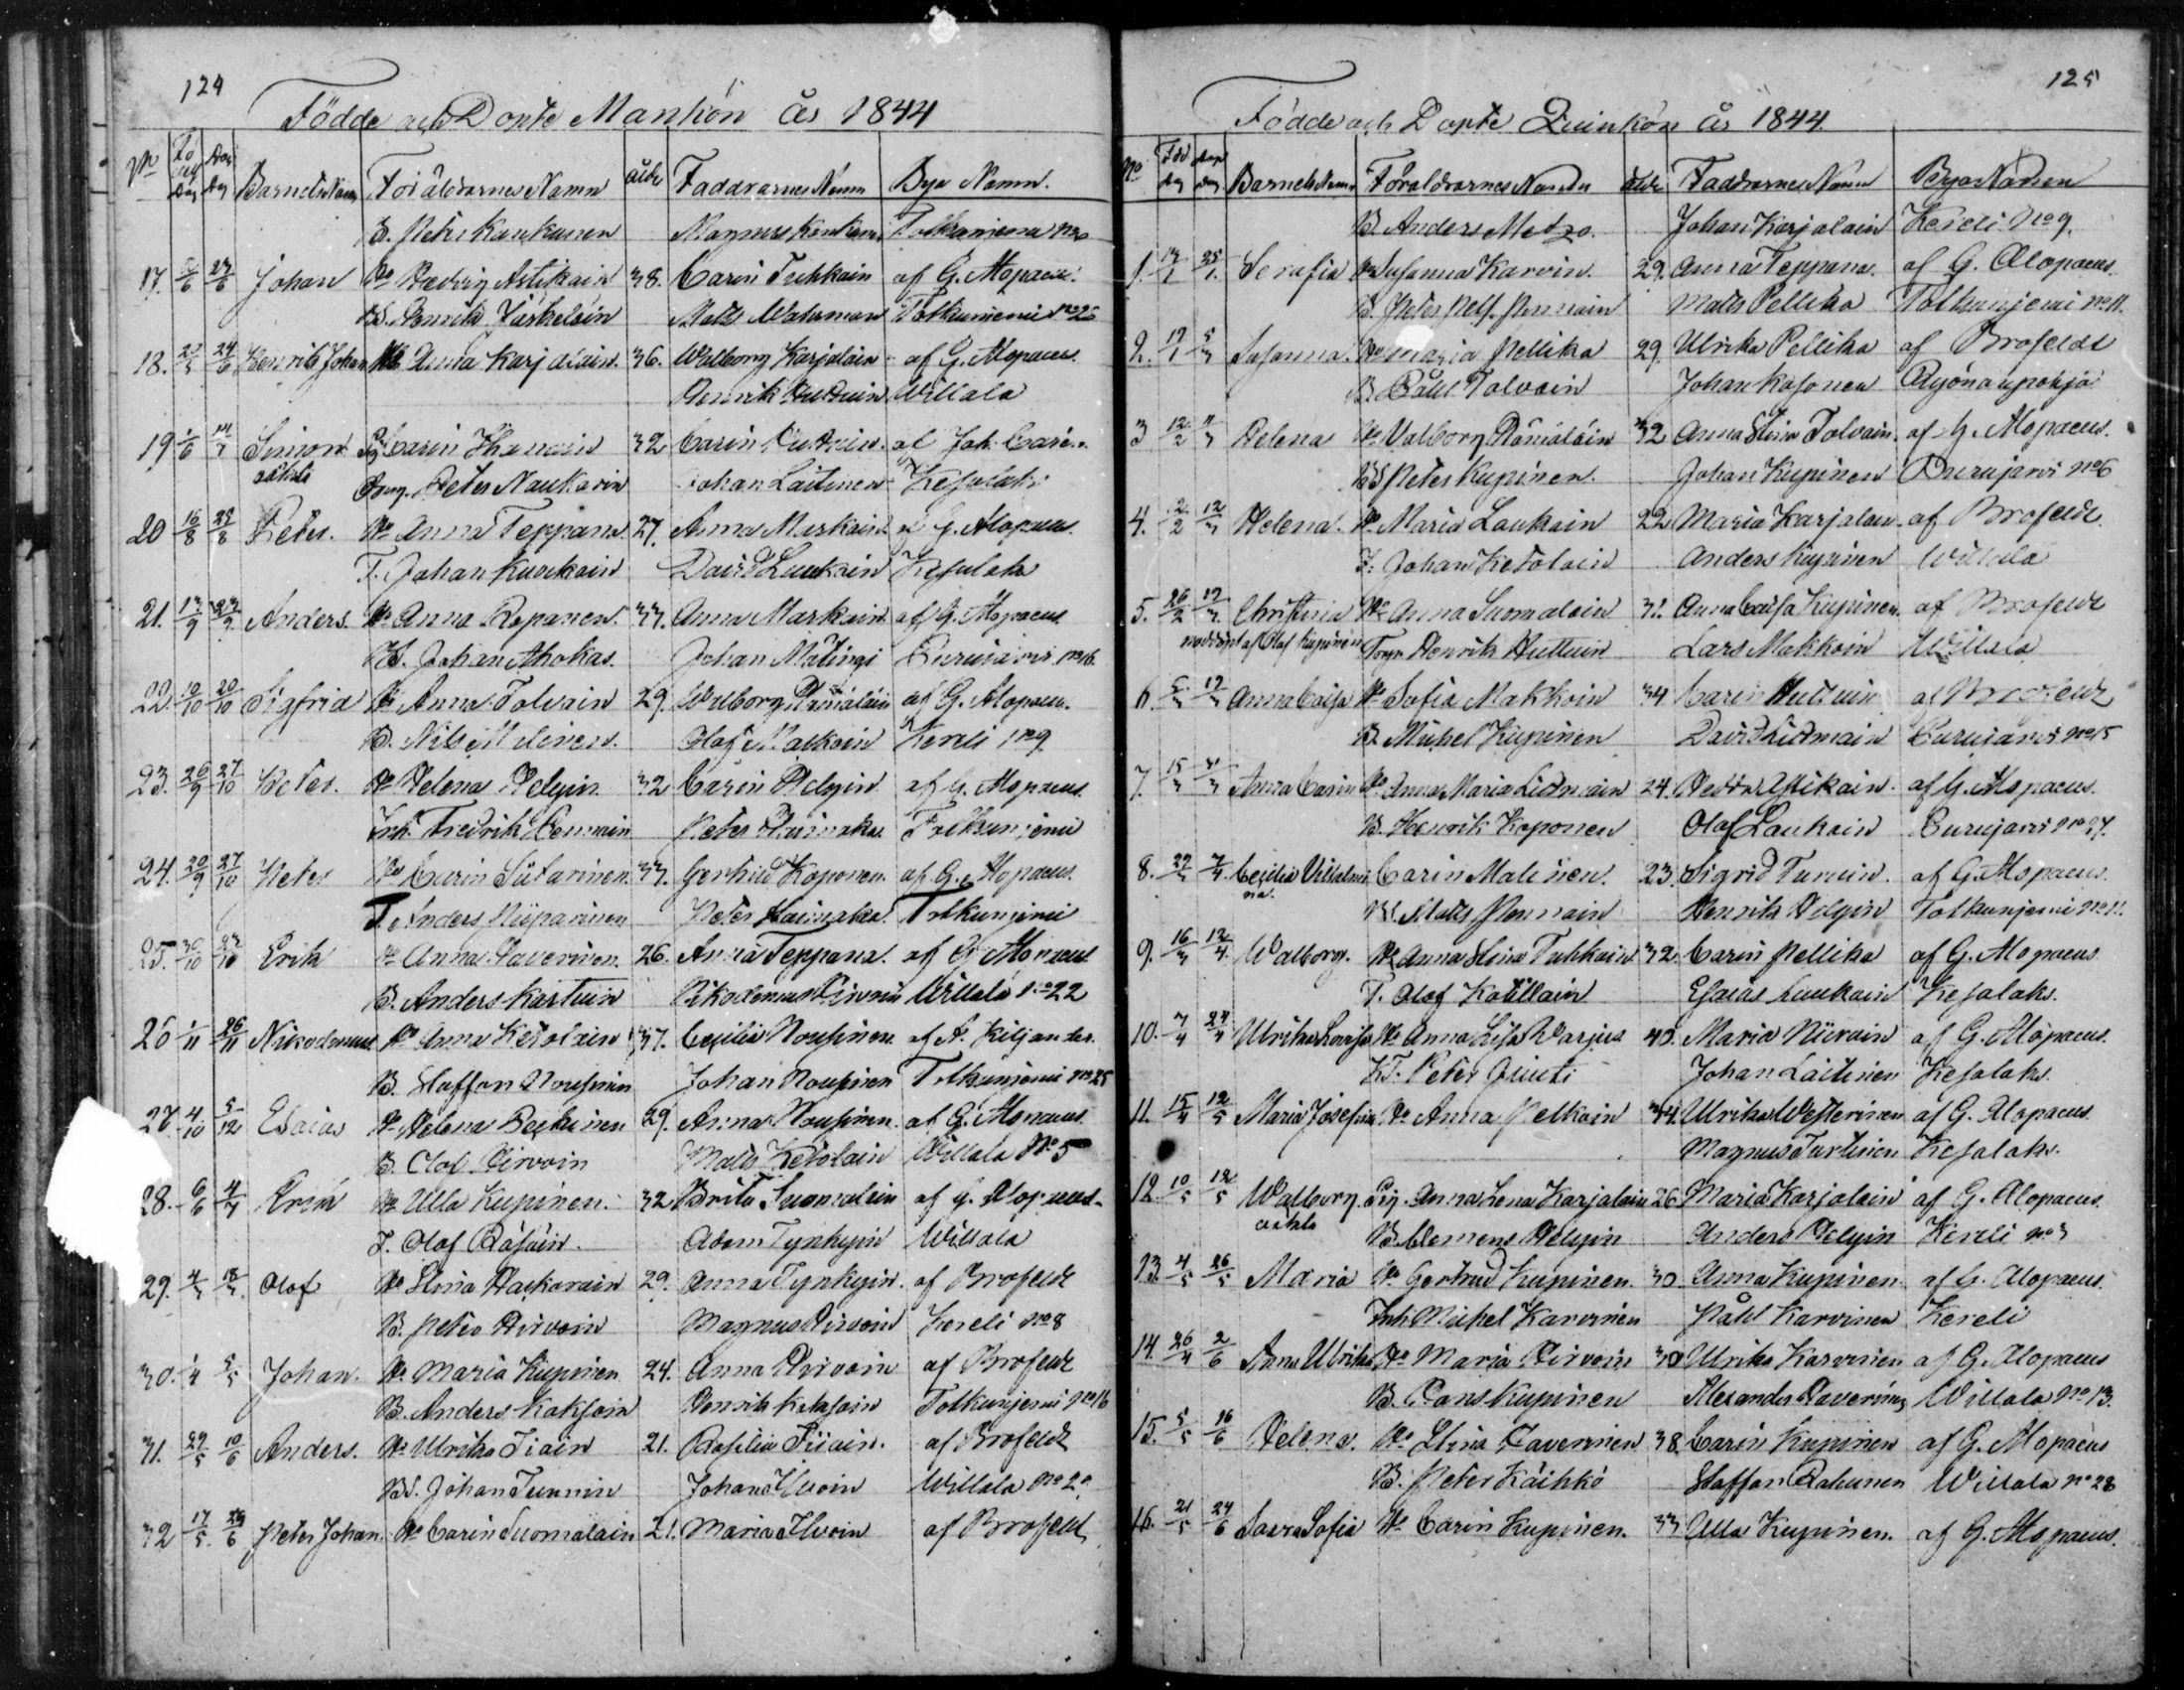 124
Födde och Döpte Mankön År 1844
No Barnets Namn Föräldrarnes Namn ålde Faddrarnes Namn Bya Namn.
B. Peter Kaukunen Magnus Tolkuniemi
17. 6 23/6 Johan Ha Hedvig Astikain 38. Carin Tuhkain af G. Alopaeus.
Henrik Jäskeläin Matts Tolkuniemi No 26
18. 24/6 Henrik Johan Hu Anna Karjalain. 36. Walborg Karjalain af G. Alopaeus.
Henrik Huttuin Willala
19 /6 Simon Pig Carin 32 Carin Huttuin. af Joh.
oäkta Dreng. Peter Naukarin Johan Laitinen Kesalaks
20 16/8 28/8 Peter. Hu Anna Teppana. 27. Anna G. Alopaeus.
T. Johan Kuukain David Luukain Kesalaks
21. 13/9 23/9 Anders. Hu Anna Repanen. 33. Anna Markain af G. Alopaeus
Johan Ahokas. Johan Mätingi Purujärvi No 16.
22. 10/10 20/10 Sigfrid Hu Anna Tolvain 29. Walborg Hämäläin af G. Alopaeus.
B. Nils Olof Makoin Kereli No 9
23. 26/9 27/10 Peter. Hu Helena Pelgin 32 Carin Pelgin. af G. Alopaeus.
Inh. Fredrik Pennain Peter Tolkunjemi
24. 20/9 27/10 Peter Hu Carin Siitarinen. 33. Gertrud Koponen. af G. Alopaeus.
T. Anders Peter Tolkunjemi
25. 30/10 /10 Erik Hu Anna Haverinen. 26. Anna Teppana. af G. Alopaeus
B. Anders Kartuin Nikodemus Hirvoin Willala No 22
26 1/11 26/11 Nikodemus Hu Anna Ketolain 37. Cecilia Nousinen. af A. Kiljander.
B. Staffan Nousinen Johan Nousinen Tolkunjemi No 25
27. 4/10 5/12 Esaias Hu Helena 29. Anna Nousinen. af G. Alopaeus.
B. Olof Hirvoin Matts Ketolain Willala No 5
28. 6/6 4/7 Hu Ulla Kupinen. 32 Brita Suomalain af G. Alopaeus.
T. Olof Räsäin. Adam Tynkyin Willala
29. 4/3 18/3. Olof Hu Stina 29. Anna Tynkyin. af Brofeldt
B. Peter Hirvoin Magnus Hirvoin Kereli No 8
30. 1/4 5/5 Johan. Hu Maria Kupinen 24. Anna Hirvoin af Brofeldt
B. Anders Kaksoin Henrik Tolkunjemi No 16
31. 29/5 10/6 Anders. Hu Ulrika Tiain 21. Basilia Tiiain. af Brofeldt
Bs. Johan Turunin Johan Ilvoin Willala No 20.
32 17/5. 24/6 Peter Johan. Hu Carin Suomalain 21. Maria Ilvoin af Brofeldt
125
Födde och Döpte Quinkön År 1844.
No Föd dag Barnets Namn Föräldrarnes Namn ålde Faddrarnes Namn Bya Namn
B. Anders Metzo. Johan Karjalain Kereli No 9.
1. 14/1 25/1. Serafia Hu Susanna Karvin. 29. Anna Teppana. af G. Alopaeus.
B. Peter Pennain Matts Pellika Tolkunjemi No 11.
2. 17/1 5/3 Susanna. Hu Maria Pellika 29. Ulrika Pellika af Brofeldt
B. Påhl Tolvain Johan Kosonen
3 12/2 11/3 Helena Hu Valborg Hämäläin 32 Anna Stina Tolvain. af G. Alopaeus.
Bs Peter Kupinen. Johan Kupinen Purujarvi No 6
4. 2/2 12/3 Helena. Hu Maria Laukain 22 Maria Karjalain. af Brofeldt.
T. Johan Ketolain Anders Kupinen Willala
5. 26/2 17/3. Christina Hu Anna Suomalain 31. Anna Caisa Kupinen. af Brofeldt
nöddöpt af Olof Kupinen Torp. Henrik Huttuin Lars Makkoin Willala
6. 5/3 17/3 Anna Caisa Hu Sofia Makkoin 34 Carin Huttuin af Brofeldt
B. Mickel Kupinen David Lidmain Purujärvi No 15
7. 15/3 31/3 Anna Carin Hu Anna Maria Lidmain 24. Hedda Astikain. af G. Alopaeus.
B. Henrik Koponen Olof Laukain Purujarvi No 27.
8. 22/3 7/4 Cecilia Vilhelmi Carin Malinen. 23. Sigrid Turuin. af G. Alopaeus.
na. Matts Pennain Henrik Pelgin Tolkunjemi No 11.
9. 16/3 12/4. Walborg. Hu Anna Stina Tuhkain 32. Carin Pellika af G. Alopaeus
T. Olof Kotillain Esaias Luukain Kesalaks.
10. 7/4 24/4 Ulrika Lovisa Hu Anna Lisa Varjus 40. Maria Niirain af G. Alopaeus.
KT. Peter Quinti Johan Laitinen Kesalaks.
11. 15/4 12/5 Maria Josefina Hu Anna Pelkoin 34. Ulrika Westerinen af G. Alopaeus.
Magnus Turtinen Kesalaks.
12. 10/5 12/5 Walborg Pig. Anna Lena Karjalain 26. Maria Karjalain af G. Alopaeus.
oäkta B. Clemens Pelgin Anders Pelgin Kereli No 3
13. 4/5 26/5 Maria Hu Gertrud Kupinen. 30. Anna Kupinen. af G. Alopaeus.
Inh. Mickel Karvinen Påhl Karvinen Kereli
14. 26/4 2/6 Anna Ulrika Hu Maria Hirvoin 30 Ulrika Karvinen af G. Alopaeus
B. Hans Kupinen Alexander Haverinen Willala No 13.
15. 5/5 16/6 Helena. Hu Stina Haverinen 38. Carin Kupinen af G. Alopaeus
B. Peter Käihkö Staffan Pakunen Willala No 28
16. 21/5 24/6 Saara Sofia Hu Carin Kupinen. 33 Ulla Kupinen. af G. Alopaeus.